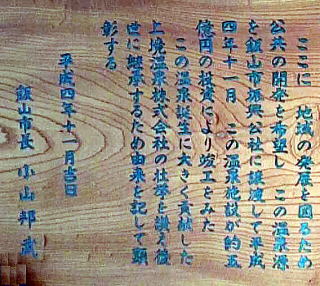 ここに 地域の発展を図るため
公共の開発を希望し この温泉源
を飯山市振興公社に譲渡して平成
四年十一月 この温泉施設が約五
億円の投資により竣工をみた
この温泉誕生に大きく貢献した
上境温泉株式会社の壮挙を讃え後
世に継承するため由来を記して顕
彰する
平成四年十一月吉日
飯山市長 小山邦武